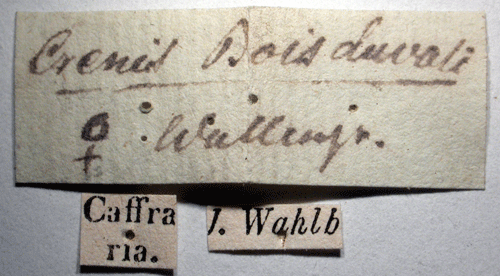 Crenis Boisduvali
♀ : Wallengr.
Caffra
ria.
J. Wahlb